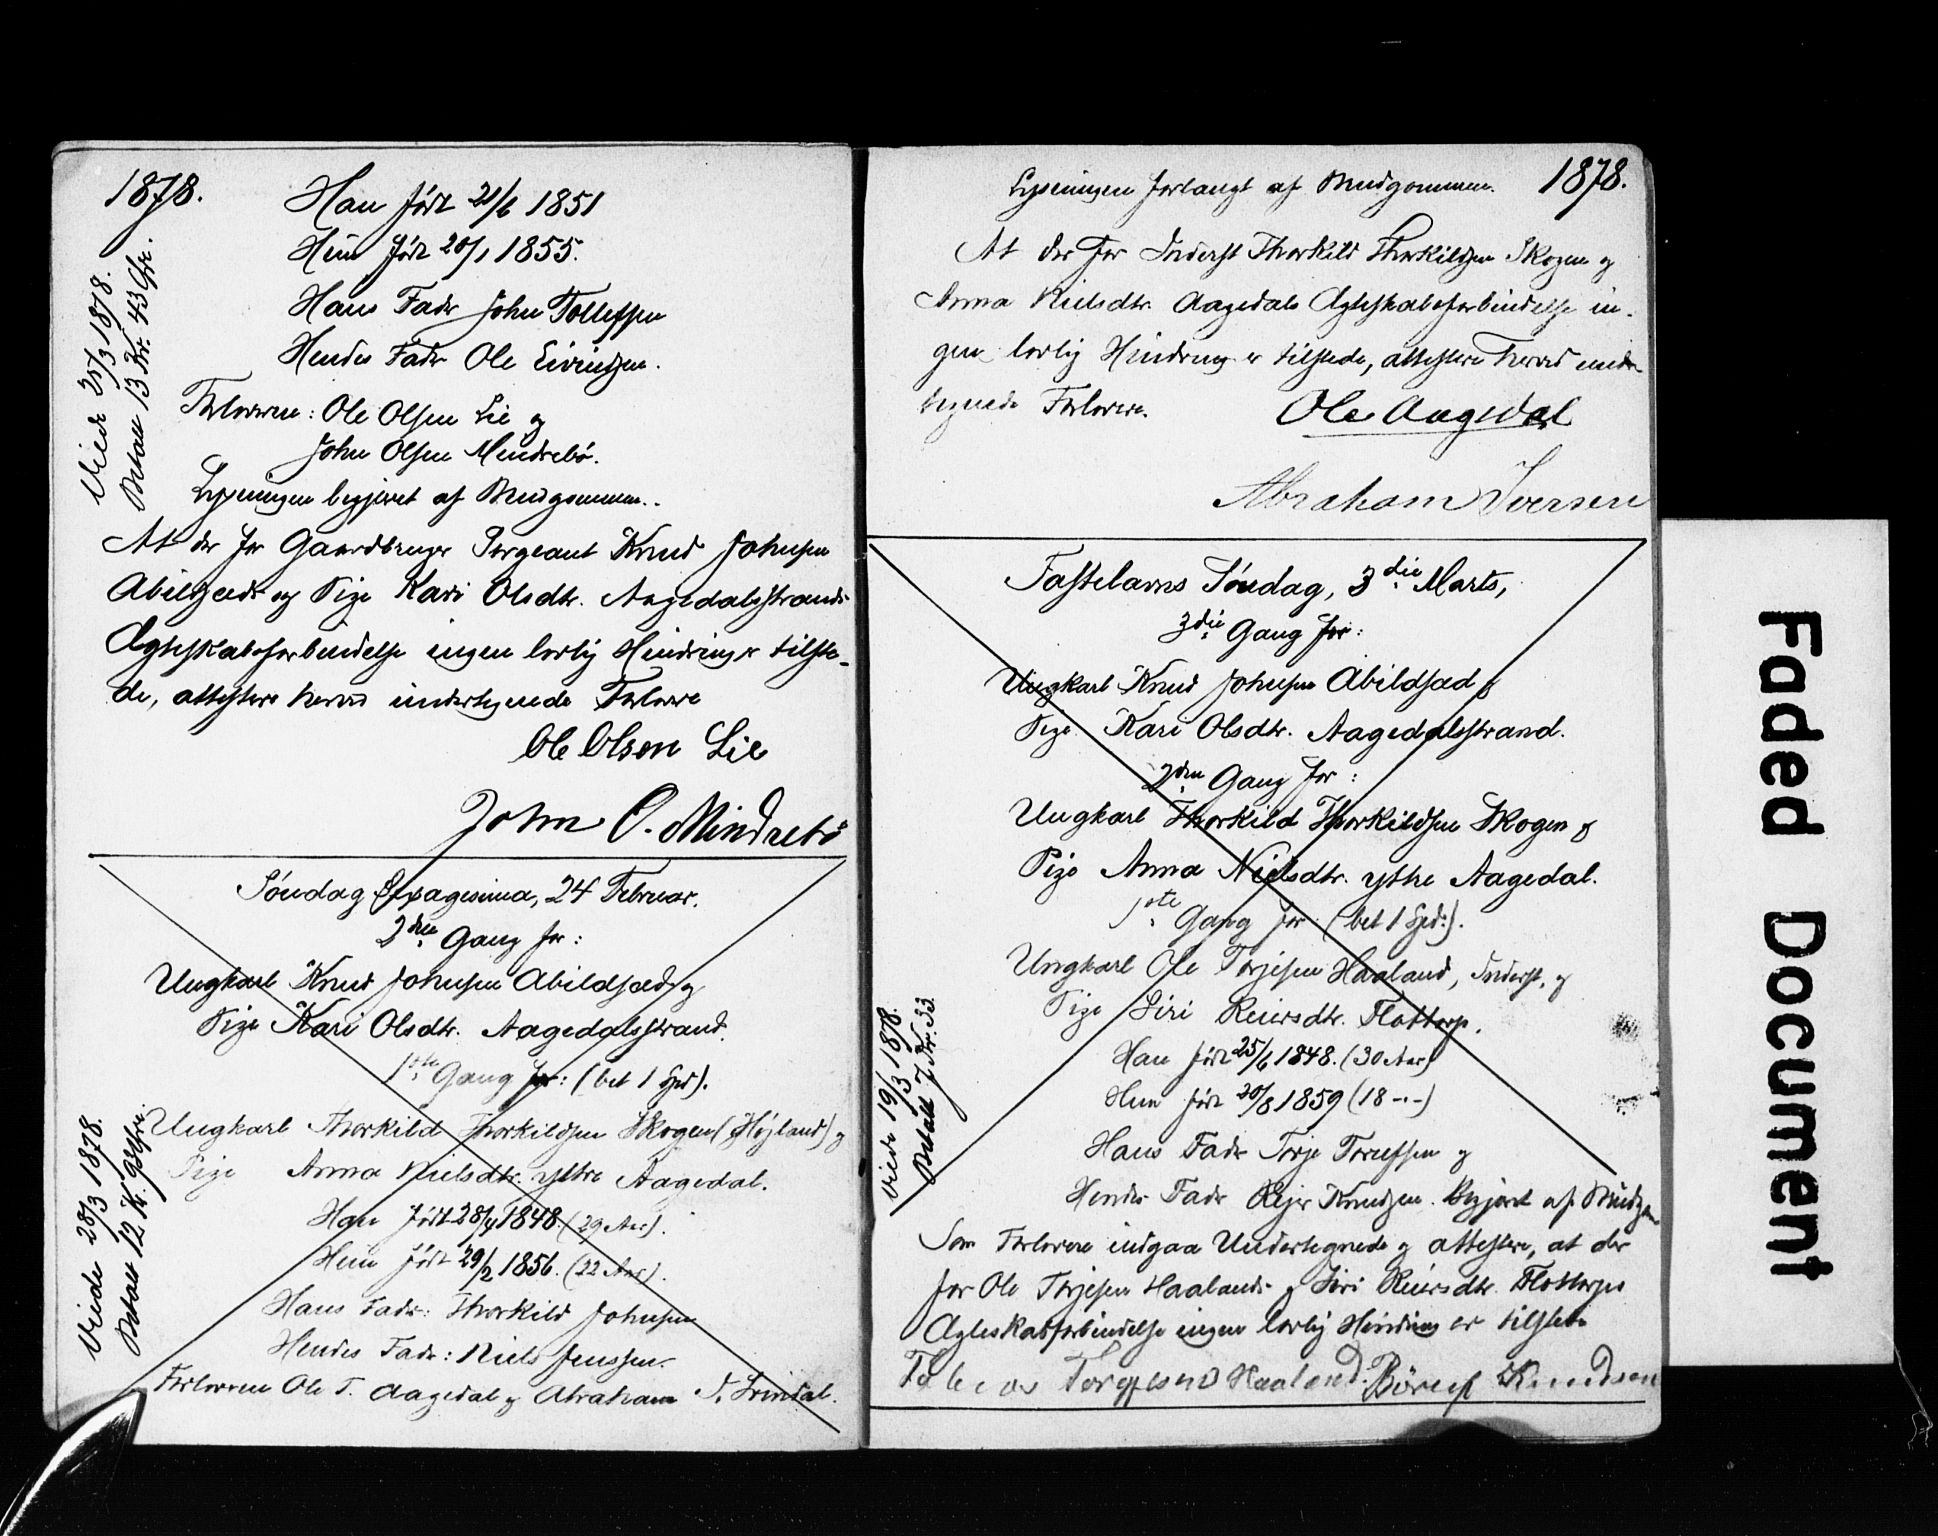 1878.
Han född 21/6 1851
Hun född 20/1 1855.
Hans Fader John Tollefsen
Hendes Fader Ole Eivindsen.
Forlovere: Ole Olsen Lie og
John Olsen Mindrebö.
Lysningen begjæret af Brudgommen.
At der for Gaardbruger Sergeant Knud Johnsen
Abilsæds og Pige Kari Olsdtr. Aagedalsstrands
Ægteskabsforbindelse ingen lovlig Hindring er tilste-
de, attestere herved undertegnede Forlovere
Ole Olson Lie
John O. Mindrebö
Viede 25/3 1878.
Betalt 13 Kr. 43
Söndag Sexagesima, 24 Februar.
2den Gang for:
Ungkarl Knud Johnsen Abildsæd og
Pige Kari Olsdtr. Aagedalsstrand.
1ste Gang for: (bet 1 Spd).
Ungkarl Thorkild Thorkildsen Skogen (Højland) og
Pige Anna Nielsdtr. ytre Aagedal.
Han Född 28/4 1848. (29 Aar).
Hun Född 29/2 1856. (22 Aar).
Hans Fader: Thorkild Johnsen
Hendes Fader: Niels Jenssen.
Forlovere Ole T. Aagedal og Abraham I.
Viede 28/3 1878.
Betalt 12 K.
Lysningen forlangt af Brudgommen. 1878.
At der for Inderst Thorkild Thorkildsen Skogen og
Anna Nielsdtr. Aagedals Ægteskabsforbindelse in-
gen lovlig Hindring er tilstede, attestere herved under
tegnede Forlovere. Ole Aagedal
Abraham Iversen
Fastelavns Söndag, 3die Marts,
3die Gang for:
Ungkarl Knud Johnsen Abildsæd og
Pige Kari Olsdtr. Aagedalsstrand.
2den Gang for:
Ungkarl Thorkild Thorkildsen Skogen og
Pige Anna Nielsdtr. ytre Aagedal.
1ste Gang for (bet 1 Spd:).
Ungkarl Ole Torjesen Haaland, Inderst, og
Pige Siri Reiersdtr. Flottorp.
Han född 25/6 1848. (30 Aar)
Hun född 20/8 1859 (18 -"-)
Hans Fader Torje
Hendes Fader Rejer Knudsen. Begjært af Brudg
Som Forlovere indgaa Undertegnede og attestere, at der
for Ole Torjesen Haalands og Siri Reiersdtr. Flottorps
Ægteskabsforbindelse ingen lovlig Hindring er tilstede
Torgjesen Haaland. Knudsen
Viede 19/3 1878.
Betalt 7 Kr. 33.
Faded Document